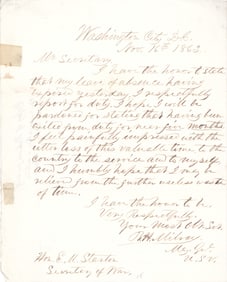 Washington City D.C.
Nov. 1863
Mr Secretary
I have the honor to state
that my leave of absence having
expired yesterday, I respectfully
report for duty. I hope I will be
pardoned for stating that having been
under from duty for near five months
I feel painfully impressed with the
utter loss of this valuable time to the
country to the service and to myself
and I humbly hope that I may be
relieved from the further useless waste
of time.
I have the honor to be
Very Respectfully
Your Most Obt Svt
R. H. Milroy
Maj Gnl
U.S.V.
Hon. E. M. Stanton
Secretary of War